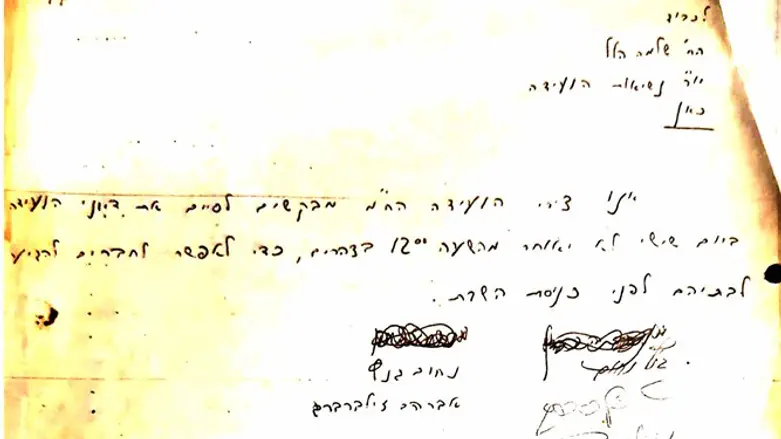 לכבוד
הח' שלמה הלל
יו"ר נשיאות הועידה
כאן
אנו צירי הועידה הח"מ מבקשים לסיים את דיוני הועידה
ביום שישי לא יאוחר מהשעה 12⁰⁰ בצהרים, כדי לאפשר לחברים להגיע
לבתיהם לפני כניסת השבת.
נחום גנץ
אברהם זילברברג